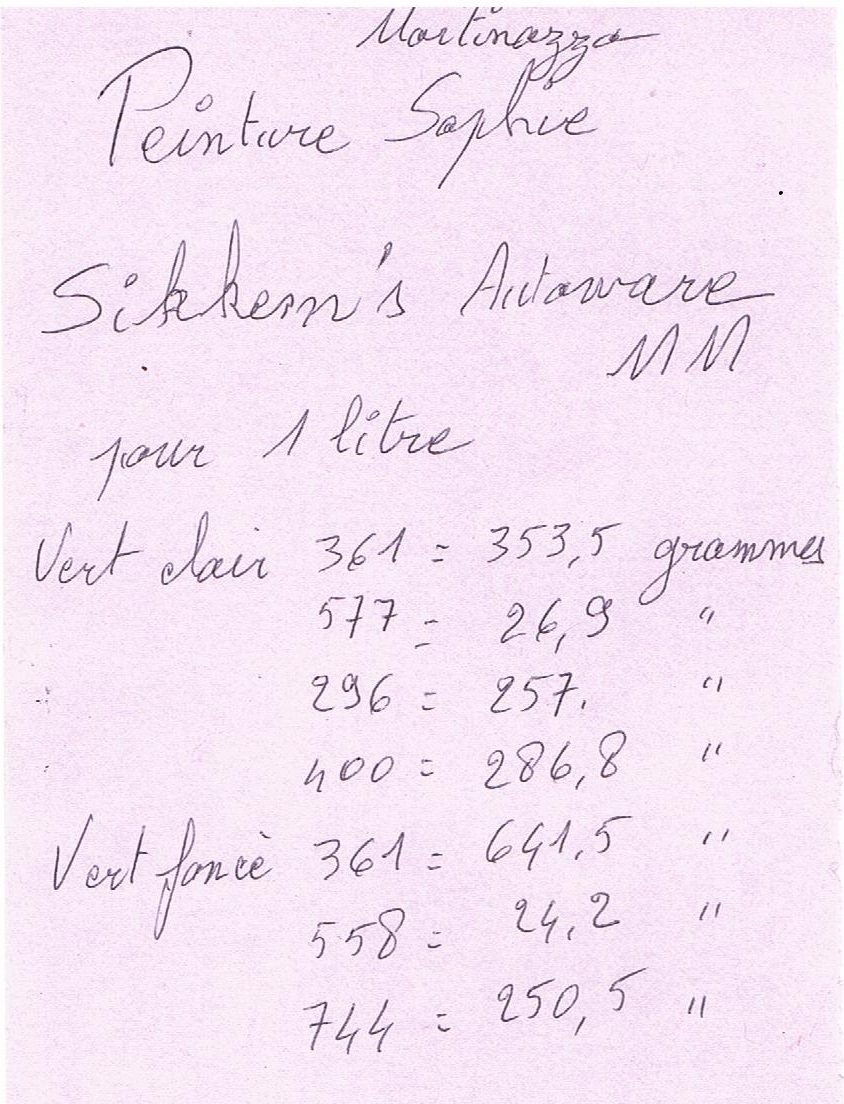 Martinazzo
Peinture Sophie
Sikkem's Autoware
MM
pour 1 litre
Vert clair 361 = 353,5 grammes
577 = 26,9 "
296 = 257. "
400 = 286,8 "
Vert foncè 361 = 641,5 "
558 = 24,2 "
744 = 250,5 "